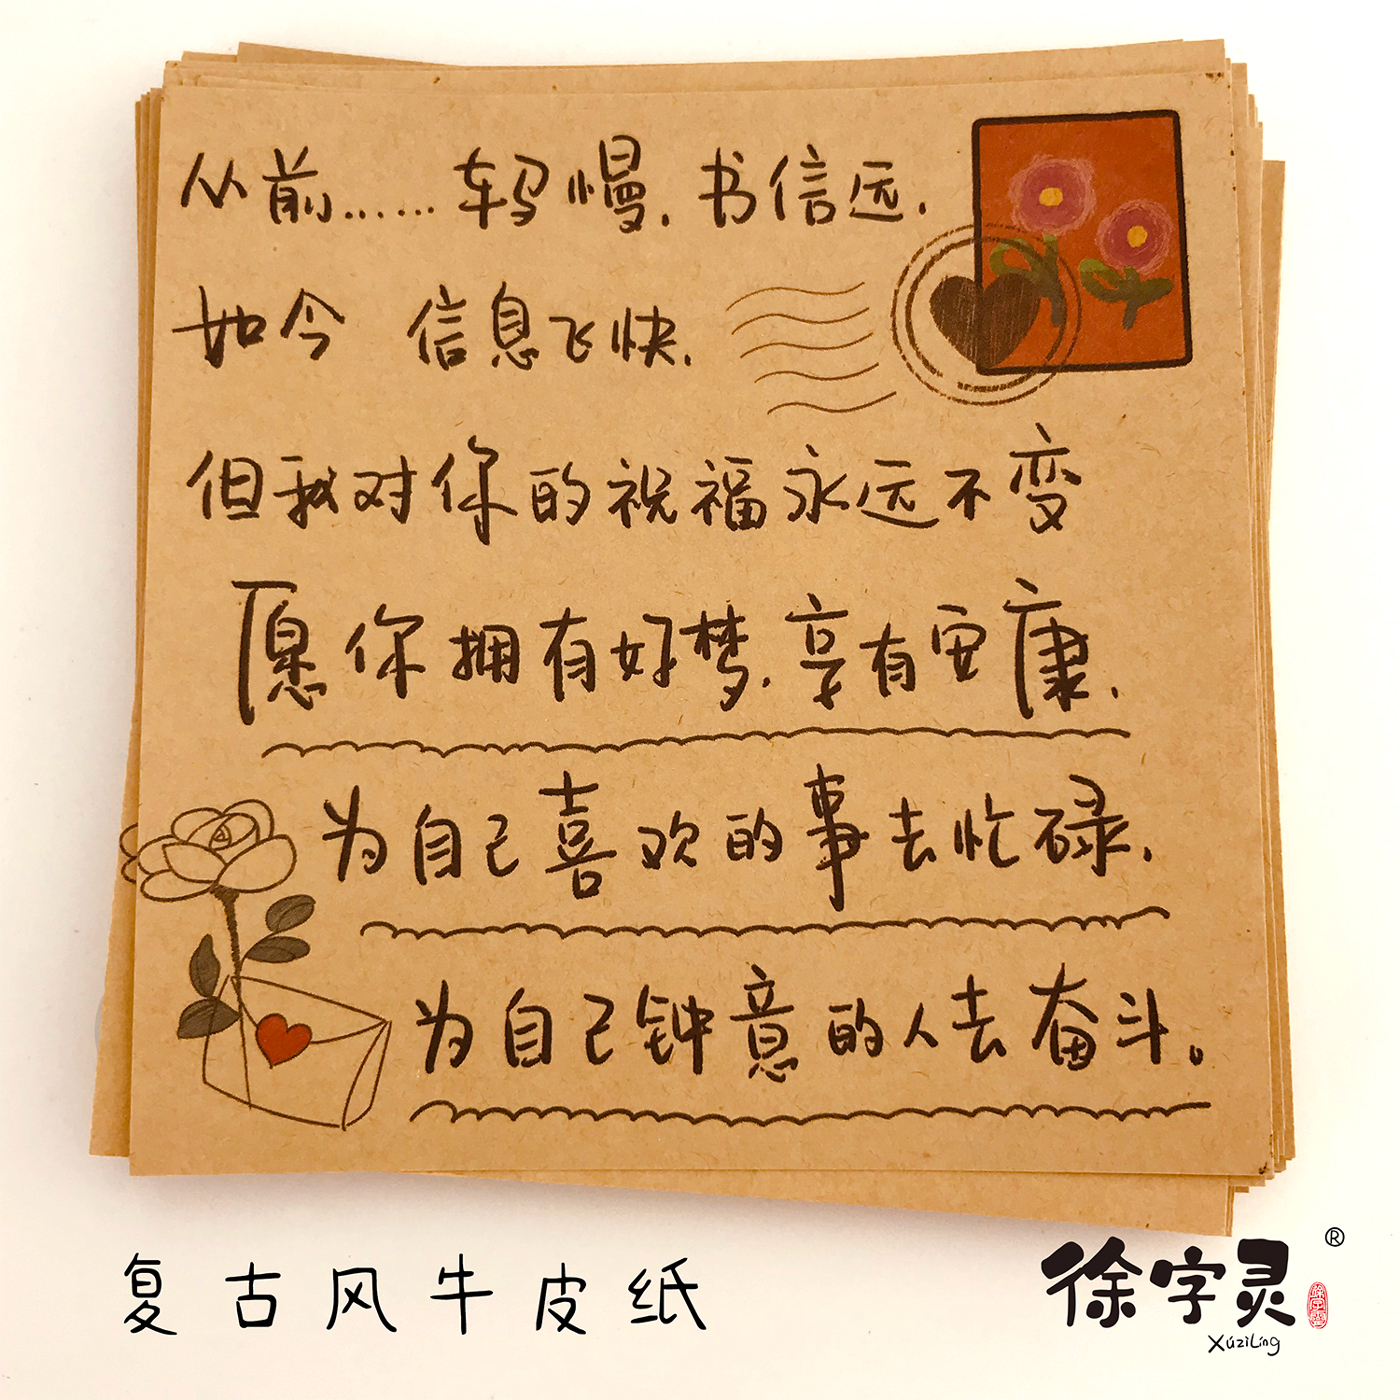 从前......车马慢,书信远,
如今 信息飞快,
但我对你的祝福永远不变
愿你拥有好梦,享有安康,
为自己喜欢的事去忙碌,
为自己钟意的人去奋斗。
复古风牛皮纸
徐字灵®
XúzìLíng